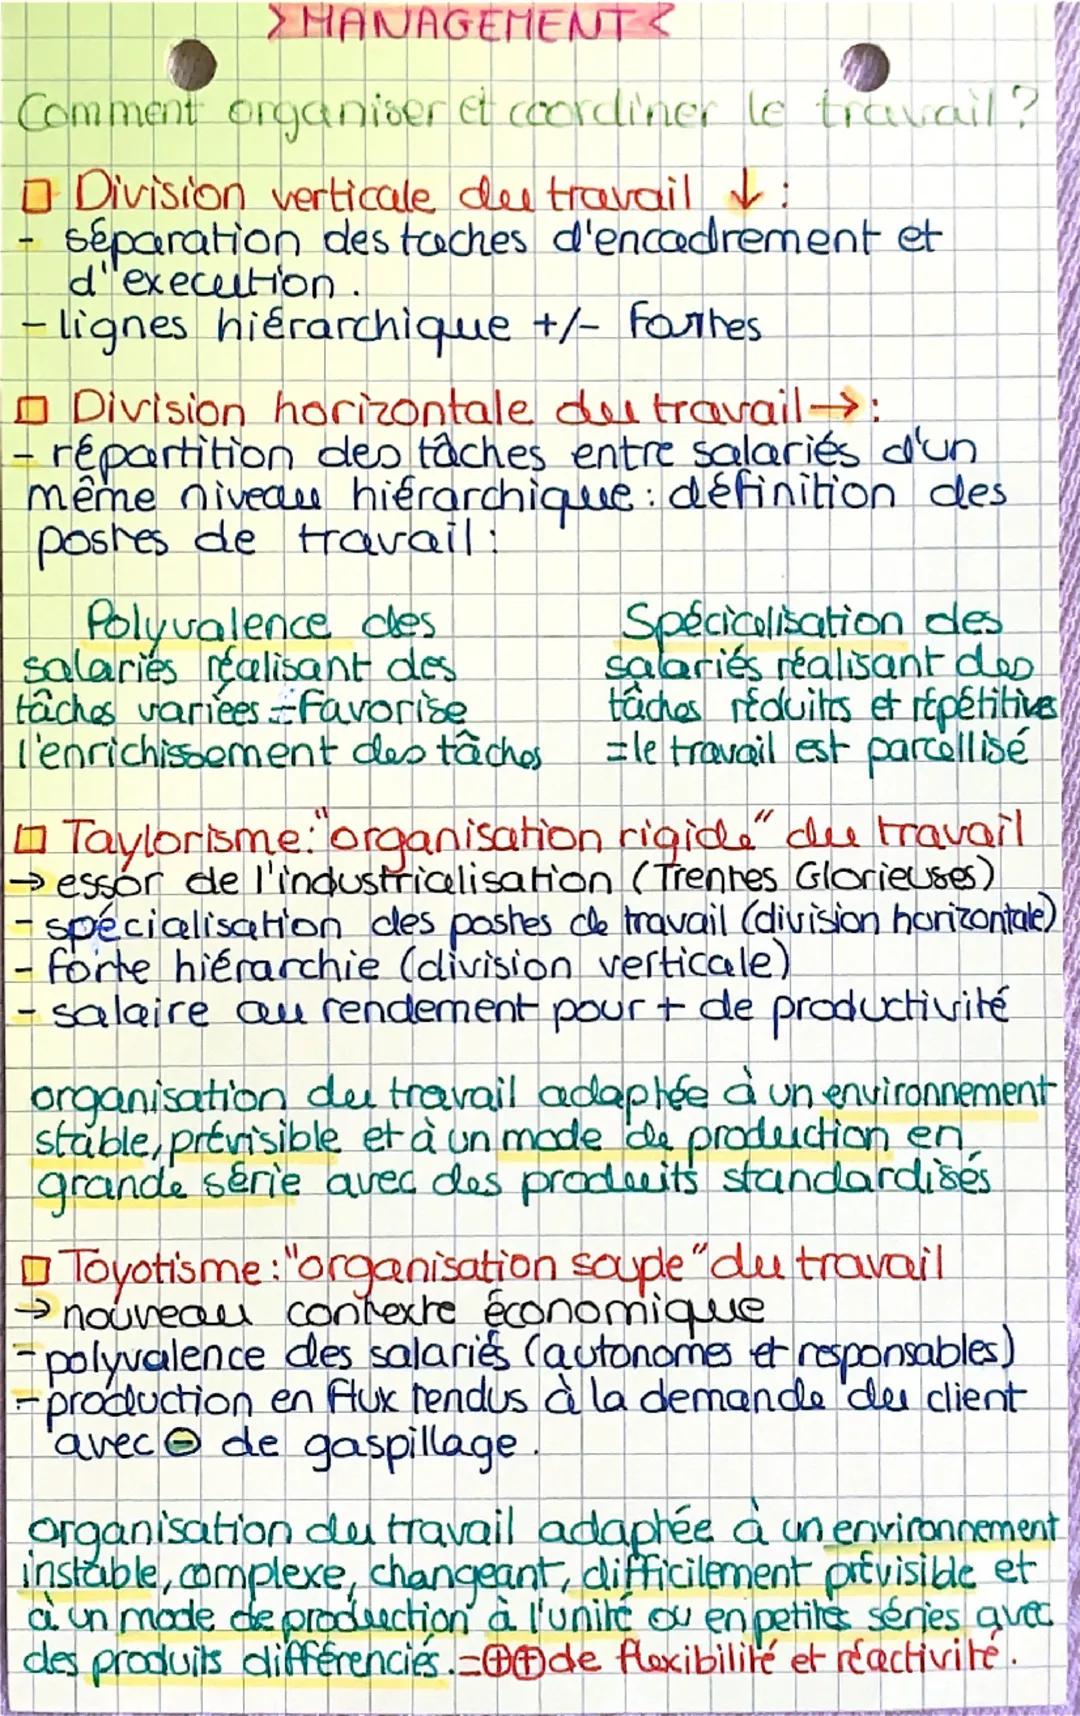 MANAGEMENT
Comment organiser et coordiner le travail ?
Division verticale du travail ↓ :
- séparation des taches d'encadrement et
d'execution.
- lignes hiérarchique +/- fortes
Division horizontale du travail → :
- répartition des tâches entre salariés d'un
même niveau hiérarchique : définition des
postes de travail :
Polyvalence des
salariés réalisant des
tâches variées = favorise
l'enrichissement des tâches
Spécialisation des
salariés réalisant des
tâches réduites et répétitives
= le travail est parcellisé
Taylorisme : "organisation rigide" du travail
→ essor de l'industrialisation (Trentes Glorieuses)
- spécialisation des postes de travail (division horizontale)
- forte hiérarchie (division verticale)
- salaire au rendement pour + de productivité
organisation du travail adaptée à un environnement
stable, prévisible et à un mode de production en
grande série avec des produits standardisés
Toyotisme : "organisation souple" du travail
→ nouveau contexte économique
- polyvalence des salariés (autonomes et responsables)
- production en flux tendus à la demande du client
avec ⊖ de gaspillage.
organisation du travail adaptée à un environnement
instable, complexe, changeant, difficilement prévisible et
à un mode de production à l'unité ou en petites séries avec
des produits différenciés. = ⊕⊕ de flexibilité et réactivité.